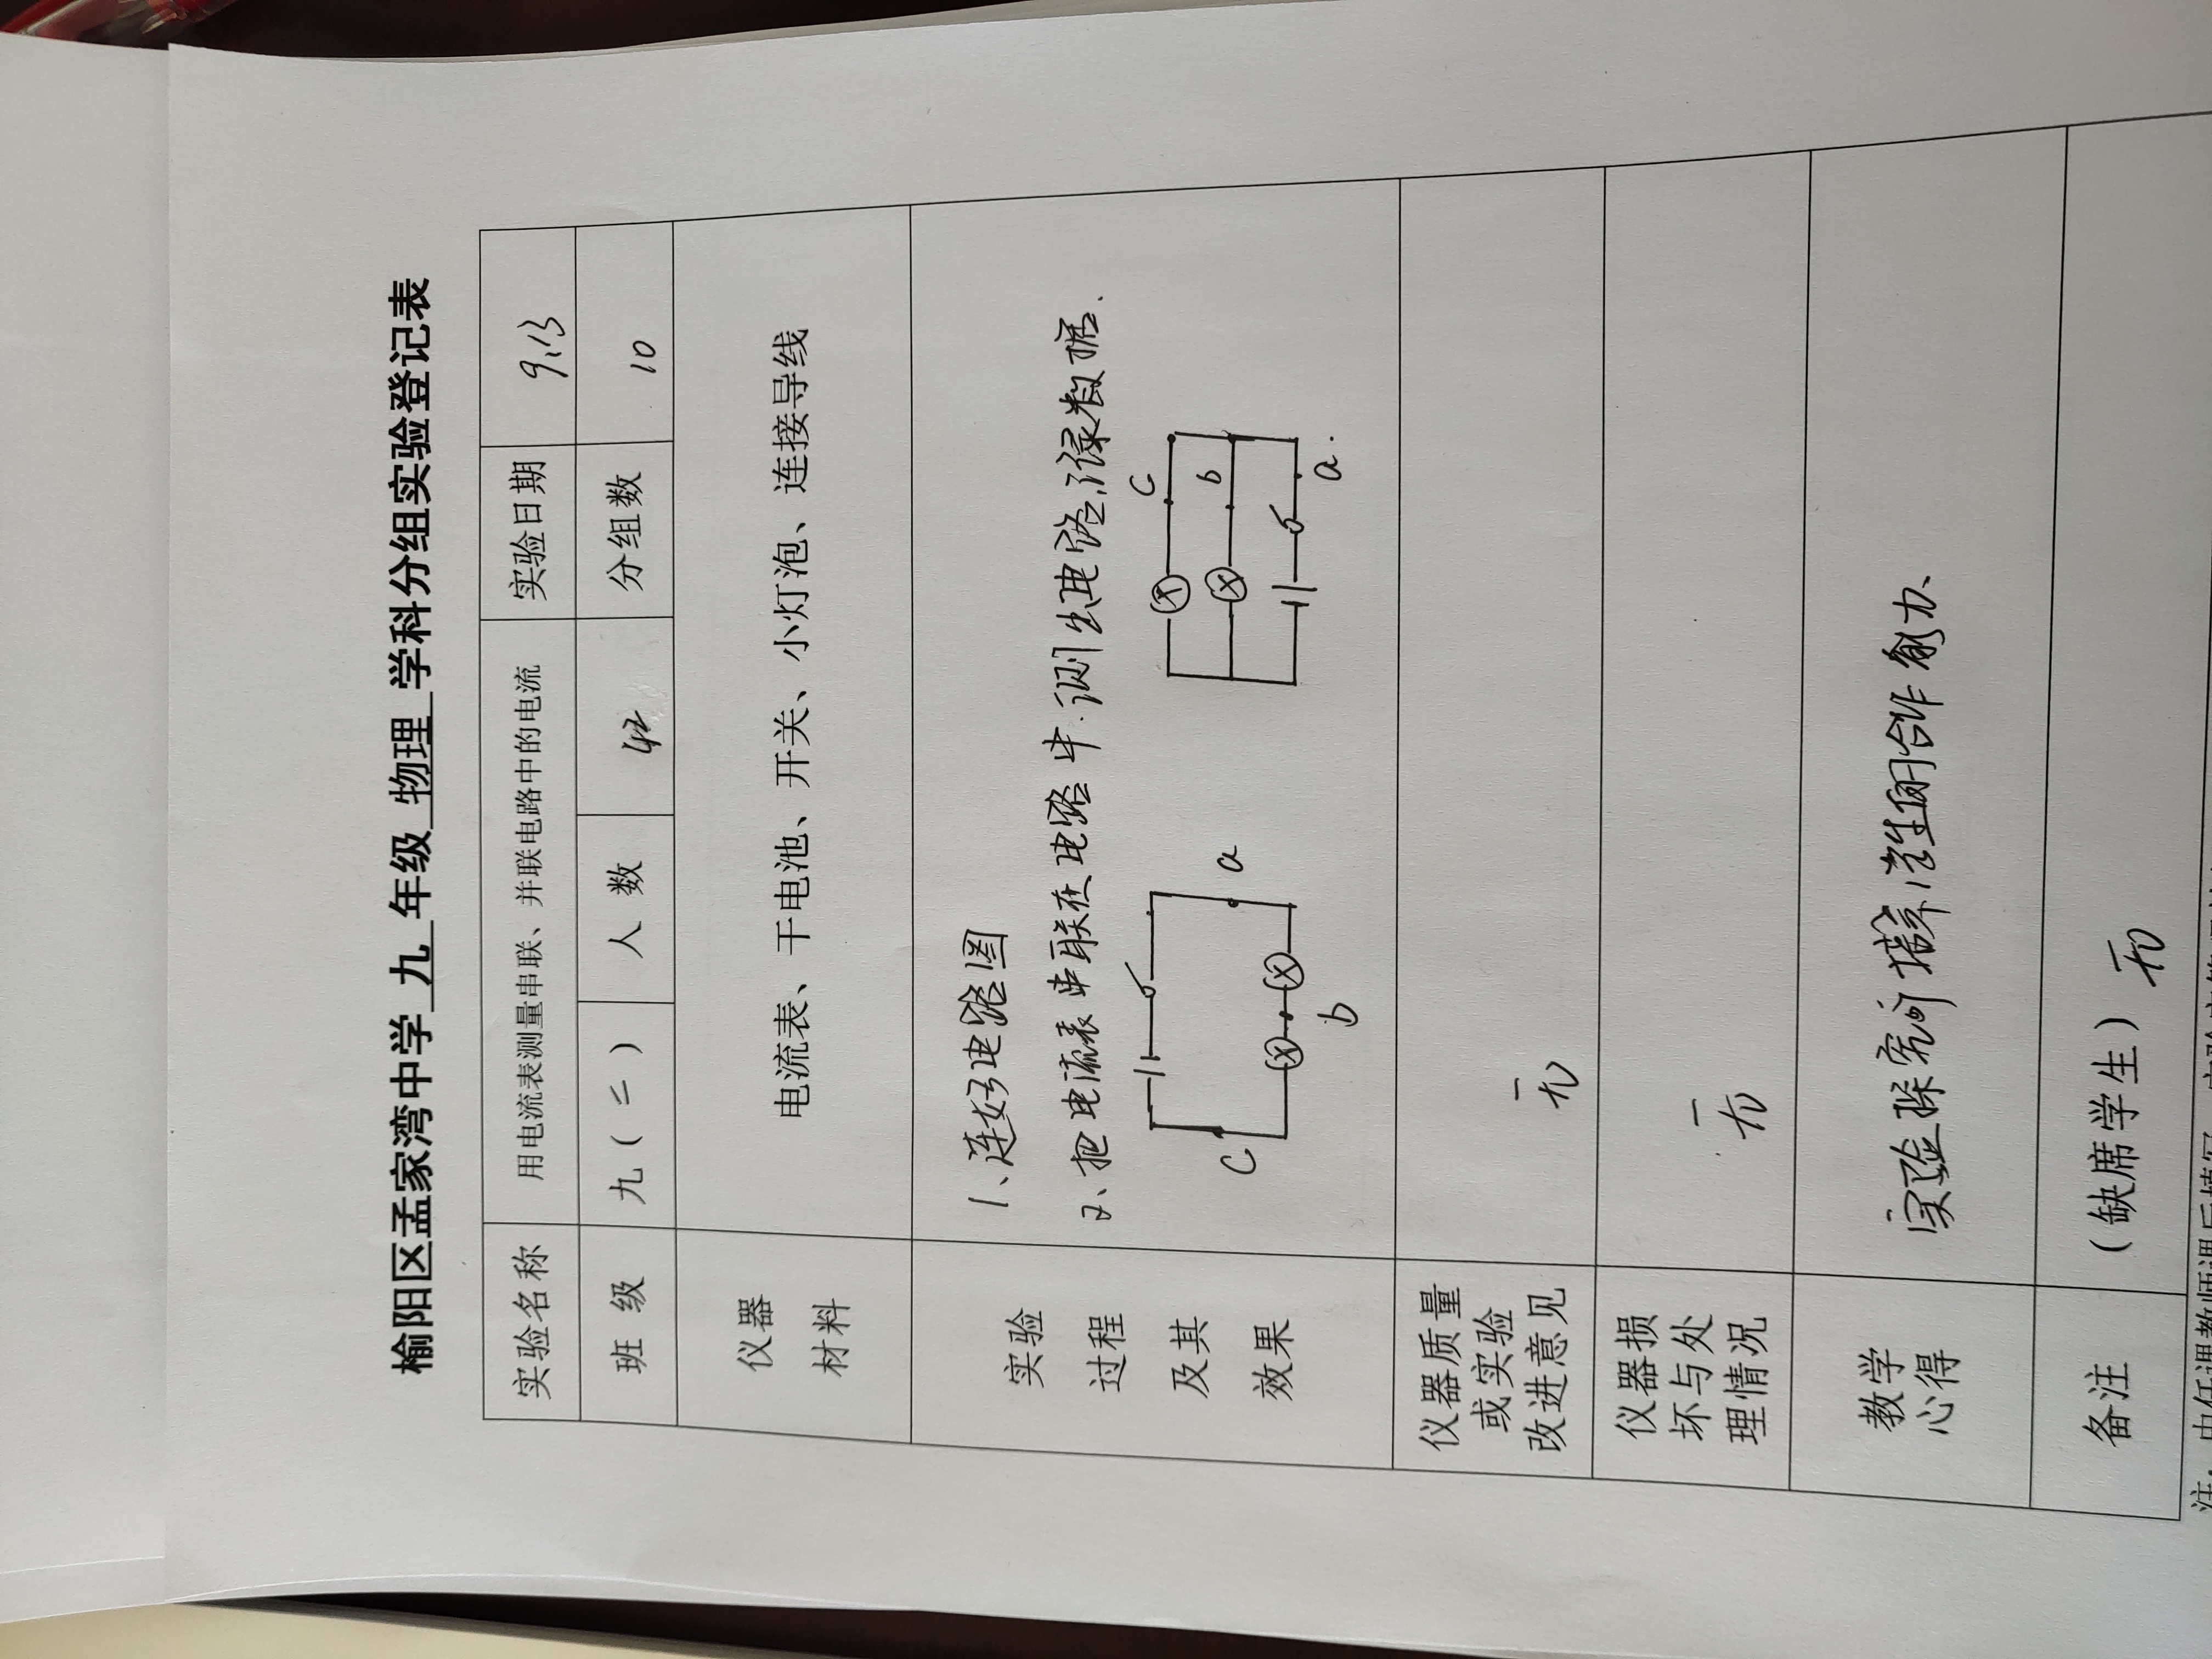 榆阳区孟家湾中学 九 年级 物理 学科分组实验登记表
实验名称 用电流表测量串联、并联电路中的电流 实验日期 9.13
班 级 九(二) 人 数 42 分组数 10
仪器
材料
电流表、干电池、开关、小灯泡、连接导线
实验
过程
及其
效果
1、连好电路图
2、把电流表串联在电路中.测出电路,记录数据.
c a b
c b a.
仪器质量
或实验
改进意见
无
仪器损
坏与处
理情况
无
教学
心得
实验探究所培养学生的合作能力、
备注
(缺席学生) 无